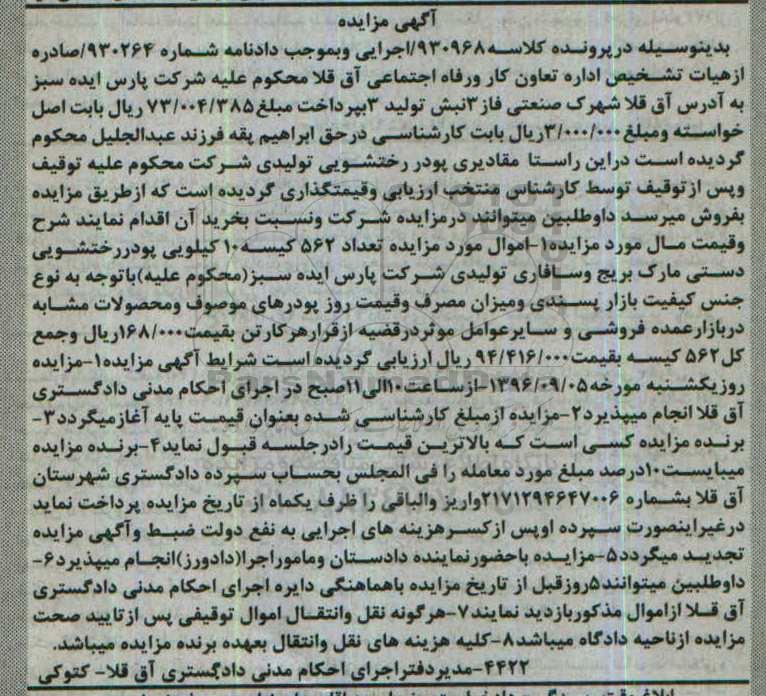 آگهی مزایده
بدینوسیله درپرونده کلاسه۹۳۰۹۶۸/اجرایی وبموجب دادنامه شماره ۹۳۰۲۶۴/صادره
ازهیات تشخیص اداره تعاون کار ورفاه اجتماعی آق قلا محکوم علیه شرکت پارس ایده سبز
به آدرس آق قلا شهرک صنعتی فاز۳نبش تولید ۳بپرداخت مبلغ۷۳/۰۰۴/۳۸۵ ریال بابت اصل
خواسته ومبلغ۳/۰۰۰/۰۰۰ریال بابت کارشناسی درحق ابراهیم پقه فرزند عبدالجلیل محکوم
گردیده است دراین راستا مقادیری پودر رختشویی تولیدی شرکت محکوم علیه توقیف
وپس ازتوقیف توسط کارشناس منتخب ارزیابی وقیمتگذاری گردیده است که ازطریق مزایده
بفروش میرسد داوطلبین میتوانند درمزایده شرکت ونسبت بخرید آن اقدام نمایند شرح
وقیمت مال مورد مزایده۱-اموال مورد مزایده تعداد ۵۶۲ کیسه۱۰ کیلویی پودررختشویی
دستی مارک بریج وسافاری تولیدی شرکت پارس ایده سبز(محکوم علیه)باتوجه به نوع
جنس کیفیت بازار پسندی ومیزان مصرف وقیمت روز پودرهای موصوف ومحصولات مشابه
دربازارعمده فروشی و سایرعوامل موثردرقضیه ازقرارهرکارتن بقیمت۱۶۸/۰۰۰ریال وجمع
کل۵۶۲ کیسه بقیمت۹۴/۴۱۶/۰۰۰ ریال ارزیابی گردیده است شرایط آگهی مزایده۱-مزایده
روزیکشنبه مورخه۱۳۹۶/۰۹/۰۵-ازساعت۱۰الی۱۱صبح در اجرای احکام مدنی دادگستری
آق قلا انجام میپذیرد۲-مزایده ازمبلغ کارشناسی شده بعنوان قیمت پایه آغازمیگردد۳-
برنده مزایده کسی است که بالاترین قیمت رادرجلسه قبول نماید۴-برنده مزایده
میبایست۱۰درصد مبلغ مورد معامله را فی المجلس بحساب سپرده دادگستری شهرستان
آق قلا بشماره ۲۱۷۱۲۹۴۶۴۷۰۰۶واریز والباقی را ظرف یکماه از تاریخ مزایده پرداخت نماید
درغیراینصورت سپرده اوپس ازکسرهزینه های اجرایی به نفع دولت ضبط وآگهی مزایده
تجدید میگردد۵-مزایده باحضورنماینده دادستان وماموراجرا(دادورز)انجام میپذیرد۶-
داوطلبین میتوانند۵روزقبل از تاریخ مزایده باهماهنگی دایره اجرای احکام مدنی دادگستری
آق قلا ازاموال مذکوربازدید نمایند۷-هرگونه نقل وانتقال اموال توقیفی پس ازتایید صحت
مزایده ازناحیه دادگاه میباشد۸-کلیه هزینه های نقل وانتقال بعهده برنده مزایده میباشد.
۴۴۲۲-مدیردفتراجرای احکام مدنی دادگستری آق قلا- کتوکی